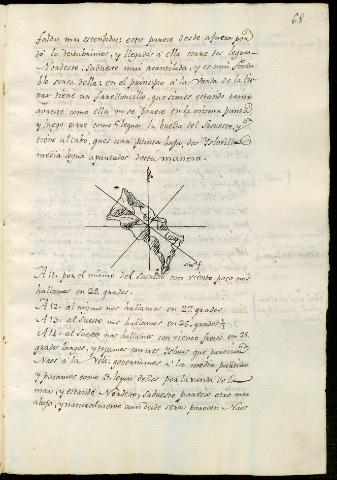 68.
faldas mas estendidas; esto parece desde afuera por
dó la descubrimos, y llegados á ella corre dos leguas
Nordeste, Sudueste mui acantilada, y es mui fonda
ble serca della; en el principio á la vanda de la tie
rra tiene un farelloncillo, que si mes estando tanto
avante como ella no se parece en la misma punta
y luego corre como 5 leguas la buelta del Sueste, y
tiene al cabo, ques una punta baja dos Yslotillos
media legua apartados desta manera.
A 11. por el mismo del Susueste con viento poco nos
hallamos en 28. grados.
A 12. al mismo nos hallamos en 27. grados.
A 13. al Sueste nos hallamos en 26. grados
A 14. al Sueste nos hallamos con viento fresco en 25.
grados largos, y tejamos con tres Yslas que parecian
Naos á la Vela, governamos á la media partida
y pasamos como 3. leguas dellas por la vanda de la
mar, y estando Nordeste, Sudueste parecio otra mas
abajo, y naturalmente aun desde serca parecen Naos